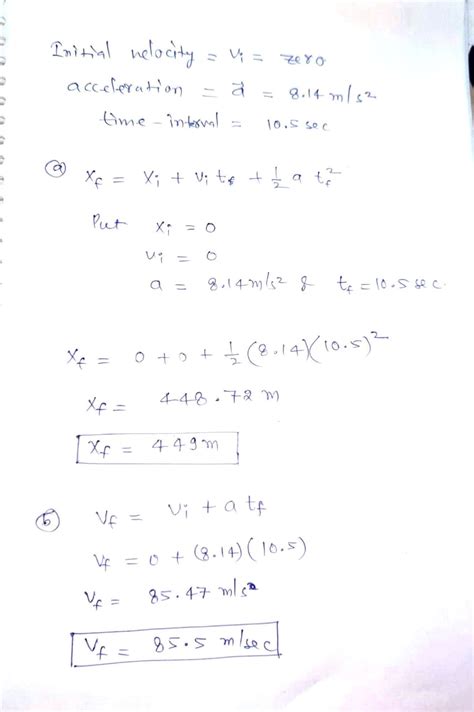 Initial velocity = vi = zero
acceleration = a⃗ = 8.14 m/s²
time - interval = 10.5 sec
(a) xf = xi + vi tf + ½ a tf²
Put xi = 0
vi = 0
a = 8.14 m/s² & tf = 10.5 sec.
xf = 0 + 0 + ½ (8.14)(10.5)²
xf = 448.72 m
xf = 449 m
(b) Vf = vi + a tf
Vf = 0 + (8.14)(10.5)
Vf = 85.47 m/s
Vf = 85.5 m/sec